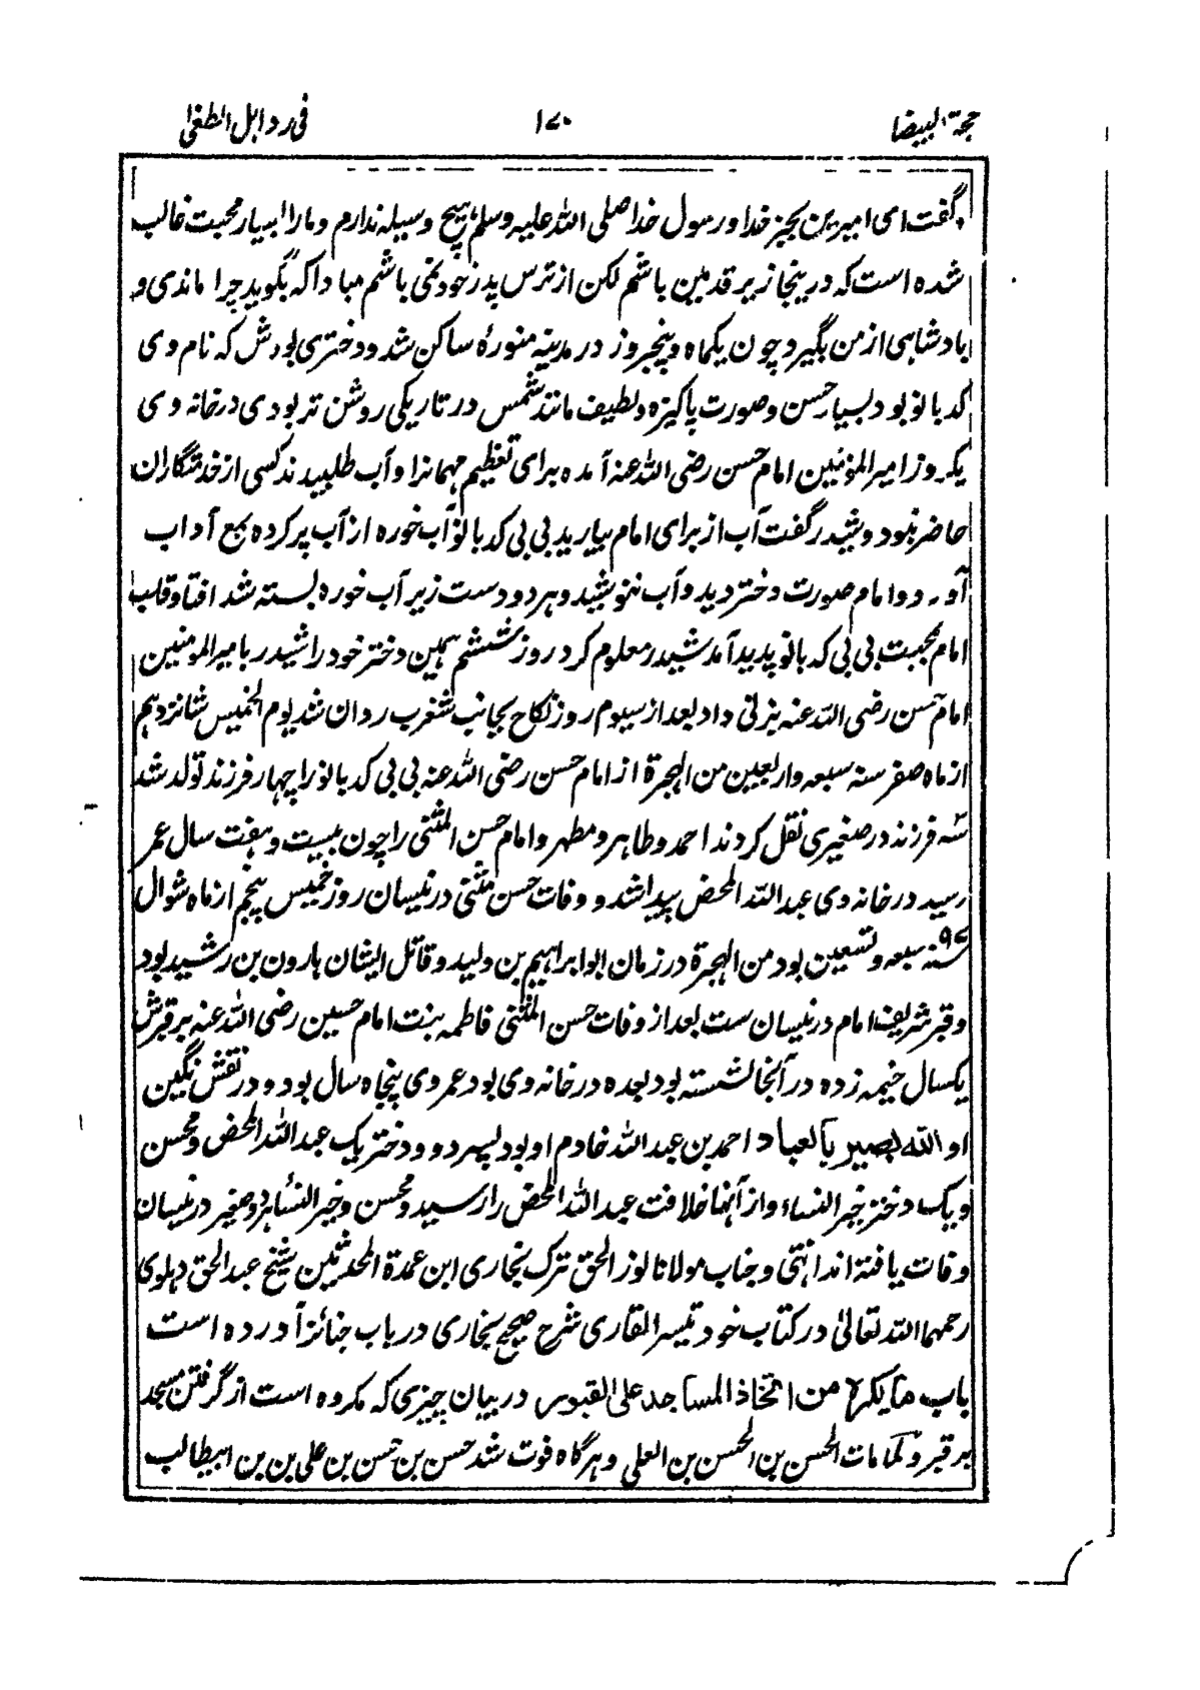 حجة البیضا ۱۷۰ فی رد اہل الطغی
گفت ای امیر من بجز خدا و رسول خدا صلی اللہ علیہ وسلم ہیچ وسیلہ ندارم و مارا بسیار محبت غالب
شدہ است کہ در ینجا زیر قدمین باشم لکن از ترس پدر خود نمی باشم مبادا کہ بگوید چرا ماندی و
بادشاہی از من بگیرد چون یکماہ و پنجروز در مدینہ منورہ ساکن شد و دختری بودش کہ نام وی
کد بانو بود بسیار حسن و صورت پاکیزہ و لطیف مانند شمس در تاریکی روشن تر بودی در خانہ وی
یکروز امیر المؤمنین امام حسن رضی اللہ عنہ آمدہ برای تعظیم مہمانرا و آب طلبیدند کسی از خدمتگاران
حاضر نبود و شیدر گفت آب از برای امام بیارید بی بی کد بانو آب خورہ از آب پر کردہ بمع آداب
آورد و امام صورت دختر دید و آب ننوشید و ہر دو دست زیر آب خورہ بستہ شد افتاد قلب
امام محبت بی بی کد بانو پدید آمد شیدر معلوم کرد روز ششم ہمین دختر خود را شیدر با میر المومنین
امام حسن رضی اللہ عنہ بزنی داد بعد از سیوم روز نکاح بجانب شغرب روان شد یوم الخمیس شانزدہم
از ماہ صفر سنہ سبعہ و اربعین من الہجرة از امام حسن رضی اللہ عنہ بی بی کد بانو را چہار فرزند تولد شد
سہ فرزند در صغیری نقل کردند احمد و طاہر و مطہر و امام حسن المثنی را چون بیست و ہفت سال عمر
رسید در خانہ وی عبد اللہ المحض پیدا شد و وفات حسن مثنی در نیسان روز خمیس پنجم از ماہ شوال
سنہ ۹۷ سبعہ و تسعین بود من الہجرة در زمان ابو ابراہیم بن ولید و قاتل ایشان ہارون بن رشید بود
و قبر شریف امام در نیسان ست بعد از وفات حسن المثنی فاطمہ بنت امام حسین رضی اللہ عنہ بر قبرش
یکسال خیمہ زدہ در آنجا نشستہ بود بعدہ در خانہ وی بود عمر وی پنجاہ سال بود و در نقش نگین
او اللہ بصیر بالعباد احمد بن عبد اللہ خادم او بود پسر دو و دختر یک عبد اللہ المحض و محسن
و یک دختر خیر النساء و از آنہا خلافت عبد اللہ المحض را رسید و محسن و خیر النسا ہر دو صغیر در نیسان
وفات یافتہ اند انتہی و جناب مولانا نور الحق ترک بخاری ابن عمدة المحدثین شیخ عبد الحق دہلوی
رحمہما اللہ تعالی در کتاب خود تیسر القاری شرح صحیح بخاری در باب جنائز آوردہ است
باب ما یکرہ من اتخاذ المساجد علی القبور در بیان چیزی کہ مکروہ است از گرفتن مسجد
بر قبر و لما مات الحسن بن الحسن بن العلی و ہرگاہ فوت شد حسن بن حسن بن علی بن بن ابیطالب